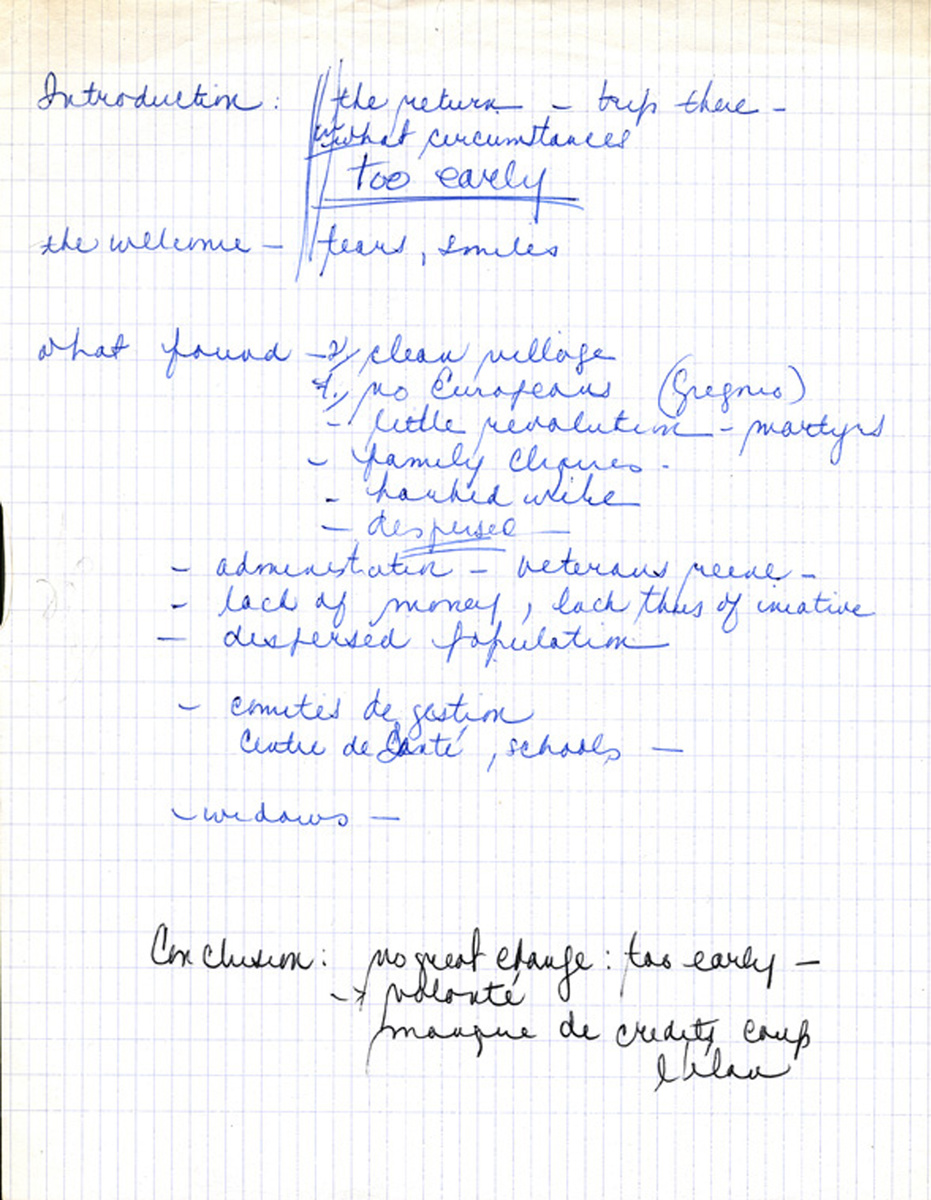 Introduction: the return - trip there -
what circumstances
too early
the welcome - tears, smiles
what found - 2/ clean village
1/ no Europeans (Gregnio)
- little revolution - martyrs
- family cliques.
- barbed wire
- dispersed -
- administration - veterans reene -
- lack of money, lack thus of iniative
- dispersed population
- comités de gestion
Centre de Santé, schools -
- widows -
Conclusion: no great change: too early -
-> volonté
manque de credits coup
l'élan